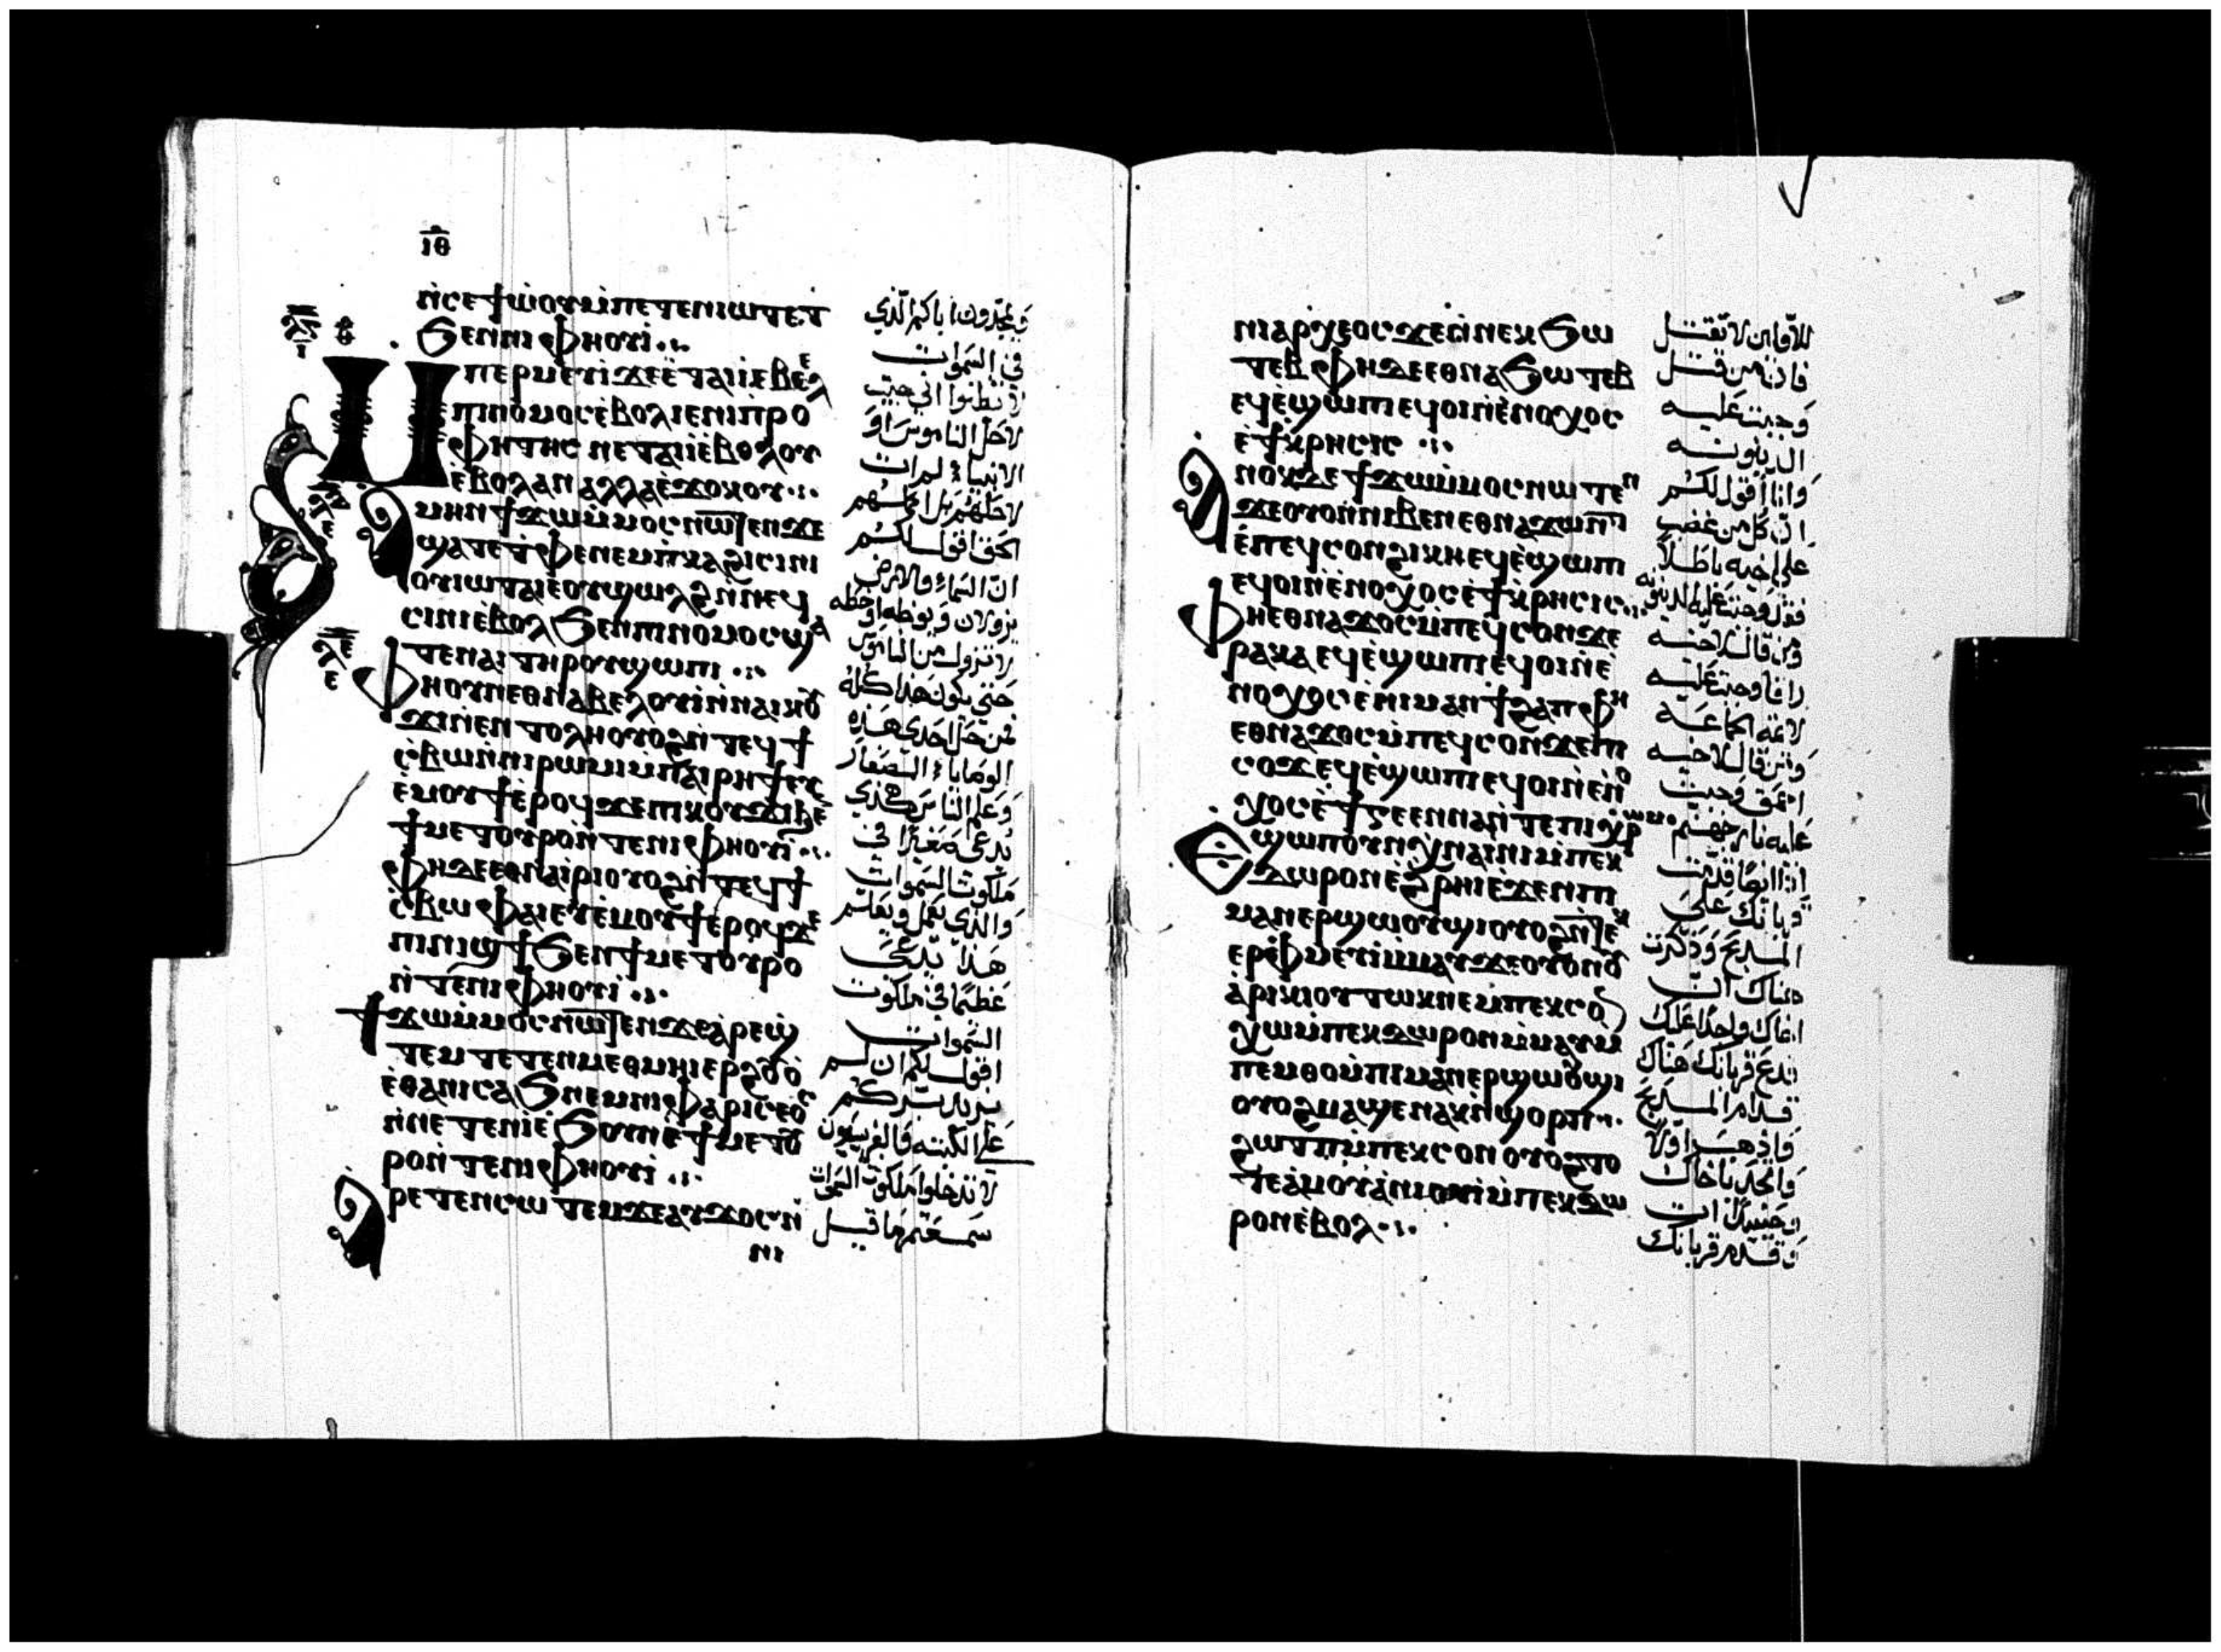 ⲓⲑ
ⲛ̀ⲥⲉϯⲱ̀ⲟⲩⲙ̀ⲡⲉⲧⲉⲛⲓⲱⲧⲉⲧ
ϧⲉⲛⲛⲓⲫⲏⲟⲩⲓ̀
Ⲙⲡⲉⲣⲙⲉⲩⲓ̀ϫⲉⲉ̀ⲧⲁⲓⲓ̀ⲉⲃⲉⲗ
ⲡⲓⲛⲟⲙⲟⲥⲉ̀ⲃⲟⲗⲓⲉⲛⲓⲡⲣⲟ
ⲫⲏⲧⲏⲥ ⲛⲉⲧⲁⲓⲓ̀ⲉ̀ⲃⲟⲗⲟⲩ
ⲉ̀ⲃⲟⲗⲁⲛⲁⲗⲗⲁⲉ̀ϫⲟⲕⲟⲩ
Ⲁⲙⲏⲛϯϫⲱⲙ̀ⲙⲟⲥⲛⲱⲧⲉⲛϫⲉ
ϣⲁⲧⲉⲧ̀ⲫⲉⲛⲉⲙⲡ̀ⲕⲁϩⲓⲥⲓⲛⲓ
ⲟⲩⲓⲱⲧⲁⲓⲉⲟⲩϣⲱⲗϩⲛ̀ⲛⲉϥ
ⲥⲓⲛⲓⲉ̀ⲃⲟⲗϧⲉⲛⲡⲓⲛⲟⲙⲟⲥϣⲁ
ⲧⲉⲛⲁⲓⲧⲏⲣⲟⲩϣⲱⲡⲓ
Ⲫⲏⲟⲩⲛⲉⲑⲛⲁⲃⲉⲗⲟⲩⲓ̀ⲛ̀ⲛⲁⲓⲕⲟⲩ
ϫⲓⲛ̀ⲉⲛⲧⲟⲗⲏⲟⲩⲟϩⲛ̀ⲧⲉϥϯ
ⲥ̀ⲃⲱⲛ̀ⲛⲓⲣⲱⲙⲓⲙ̀ⲡⲁⲓⲣⲏϯⲉⲩ
ⲉ̀ⲙⲟⲩϯⲉ̀ⲣⲟϥϫⲉⲡⲓⲕⲟⲩϫⲓϧⲉ
ϯⲙⲉⲧⲟⲩⲣⲟⲛ̀ⲧⲉⲛⲓⲫⲏⲟⲩⲓ̀
Ⲫⲏⲇⲉⲉⲑⲛⲁⲓ̀ⲣⲓⲟⲩⲟϩⲛ̀ⲧⲉϥϯ
ⲥ̀ⲃⲱⲫⲁⲓⲉⲩⲉ̀ⲙⲟⲩϯⲉⲣⲟϥϫⲉ
ⲡⲓⲛⲓϣϯϧⲉⲛϯⲙⲉⲧⲟⲩⲣⲟ
ⲛ̀ⲧⲉⲛⲓⲫⲏⲟⲩⲓ̀
Ϯϫⲱⲙ̀ⲙⲟⲥⲛⲱⲧⲉⲛϫⲉⲁ̀ⲣⲉϣ
ⲧⲉⲙⲧⲉⲧⲉⲛⲙⲉⲑⲙⲏⲓⲉⲣϩⲟⲩⲟ̀
ⲉ̀ⲑⲁⲛⲓⲥⲁϧⲛⲉⲙⲛⲓⲫⲁⲣⲓⲥⲉⲟⲥ
ⲛ̀ⲛⲉⲧⲉⲛⲓ̀ⲉ̀ϧⲟⲩⲛⲉ̀ϯⲙⲉⲧⲟⲩ
ⲣⲟⲛ̀ⲧⲉⲛⲓⲫⲏⲟⲩⲓ̀
Ⲁⲣⲉⲧⲉⲛⲥⲱⲧⲉⲙϫⲉⲁⲩϫⲟⲥⲛ̀
ⲛⲓ
ويمجّدون اباكم الّذي
في السّموات
لا تظنّوا اني جيت
لاحلّ الناموس او
الانبياء لم ات
لاحلّهم بل اكملهم
الحق اقول لكم
انّ السّماء والارض
يزولان ونوطه او خطه
لا تزول من الناموس
حتي يكون هذا كله
فمن حلّ احدي هذه
الوصايا الصغار
وعلّم الناس هكذي
يدعي صغيرًا في
ملكوت السّموات
والذي يعمل ويعلم
هذا يدعي
عظيمًا في ملكوت
السّموات
اقول لكم ان لم
يزيد برّكم
علي الكتبه والفريسيون
لا تدخلوا ملكوت السّموات
سمعتم ما قيل
ⲛⲓⲁⲣⲭⲉⲟⲥϫⲉⲛ̀ⲛⲉⲕϧⲱ
ⲧⲉⲃⲫⲏⲇⲉⲉⲑⲛⲁϧⲱⲧⲉⲃ
ⲉϥⲉ̀ϣⲱⲡⲓⲉϥⲟⲓⲛ̀ⲉ̀ⲛⲟⲭⲟⲥ
ⲉ̀ϯⲕ̀ⲣⲏⲥⲓⲥ
Ⲁⲛⲟⲕⲇⲉϯϫⲱⲙ̀ⲙⲟⲥⲛⲱⲧⲉⲛ
ϫⲉⲟⲩⲟⲛⲛⲓⲃⲉⲛⲉⲑⲛⲁϫⲱⲛⲧ
ⲉ̀ⲡⲉϥⲥⲟⲛϩⲓⲕⲏⲉϥⲉ̀ϣⲱⲡⲓ
ⲉϥⲟⲓⲛ̀ⲉ̀ⲛⲟⲭⲟⲥⲉ̀ϯⲕ̀ⲣⲏⲥⲓⲥ
Ⲫⲏⲉⲑⲛⲁϫⲟⲥⲙ̀ⲡⲉϥⲥⲟⲛϫⲉ
ⲣⲁⲕⲁⲉϥⲉ̀ϣⲱⲡⲓⲉϥⲟⲓⲛ̀ⲉ̀
ⲛⲟⲭⲟⲥⲉ̀ⲡⲓⲙⲁⲛϯϩⲁⲡⲫⲏ
ⲉⲑⲛⲁϫⲟⲥⲙ̀ⲡⲉϥⲥⲟⲛϫⲉⲡⲓ
ⲥⲟϫⲉϥⲉ̀ϣⲱⲡⲓⲉϥⲟⲓⲛ̀ⲉ̀ⲛⲟ
ⲭⲟⲥⲉ̀ϯⲅⲉⲉⲛⲛⲁⲛ̀ⲧⲉⲡⲓⲭⲣⲱⲙ
Ⲉϣⲱⲡⲟⲩⲛⲭ̀ⲛⲁⲓ̀ⲛⲓⲙ̀ⲡⲉⲕ
ⲇⲱⲣⲟⲛⲉ̀ϩⲣⲏⲓⲉ̀ϫⲉⲛⲡⲓ
ⲙⲁⲛⲉⲣϣⲱⲟⲩϣⲓⲟⲩⲟϩⲛ̀ⲧⲉⲕ
ⲉⲣⲫ̀ⲙⲉⲩⲓ̀ⲙ̀ⲙⲁⲩϫⲉⲟⲩⲟⲛⲟⲩ
ⲁ̀ⲣⲓⲕⲓⲟⲩⲧⲱⲕⲛⲉⲙⲡⲉⲕⲥⲟⲛ
ⲭⲱⲙ̀ⲡⲉⲕⲇⲱⲣⲟⲛⲙ̀ⲙⲁⲩⲙ̀
ⲡⲉⲙⲑⲟⲙ̀ⲡⲓⲙⲁⲛⲉⲣϣⲱⲟⲩϣⲓ
ⲟⲩⲟϩⲙⲁϣⲉⲛⲁⲕⲛ̀ϣⲟⲣⲡ
ϩⲱⲧⲡⲙ̀ⲡⲉⲕⲥⲟⲛⲟⲩⲟϩⲧⲟ
ⲧⲉⲁ̀ⲙⲟⲩⲁ̀ⲛⲓⲟⲩⲓ̀ⲙ̀ⲡⲉⲕⲇⲱ
ⲣⲟⲛⲉ̀ⲃⲟⲗ
للاوّلين لا تقتل
فان من قتل
وجبت عليه
الدينونه
وانا اقول لكم
انّ كل من غضب
علي اخيه باطلاً
فقد وجبت عليه الدينونه
ومن قال لاخيه
راقا وجبت عليه
لائمة الجماعه
ومن قال لاخيه
احمق وجبت
عليه نار جهنم
اذا ايضًا قدّمت
قربانك علي
المذبح وذكرت
هناك انّ
اخاك واجدًا عليك
فدع قربانك هناك
قدام المذبح
واذهب اولاً
واصلح اخاك
وحينيذٍ ات
وقدم قربانك